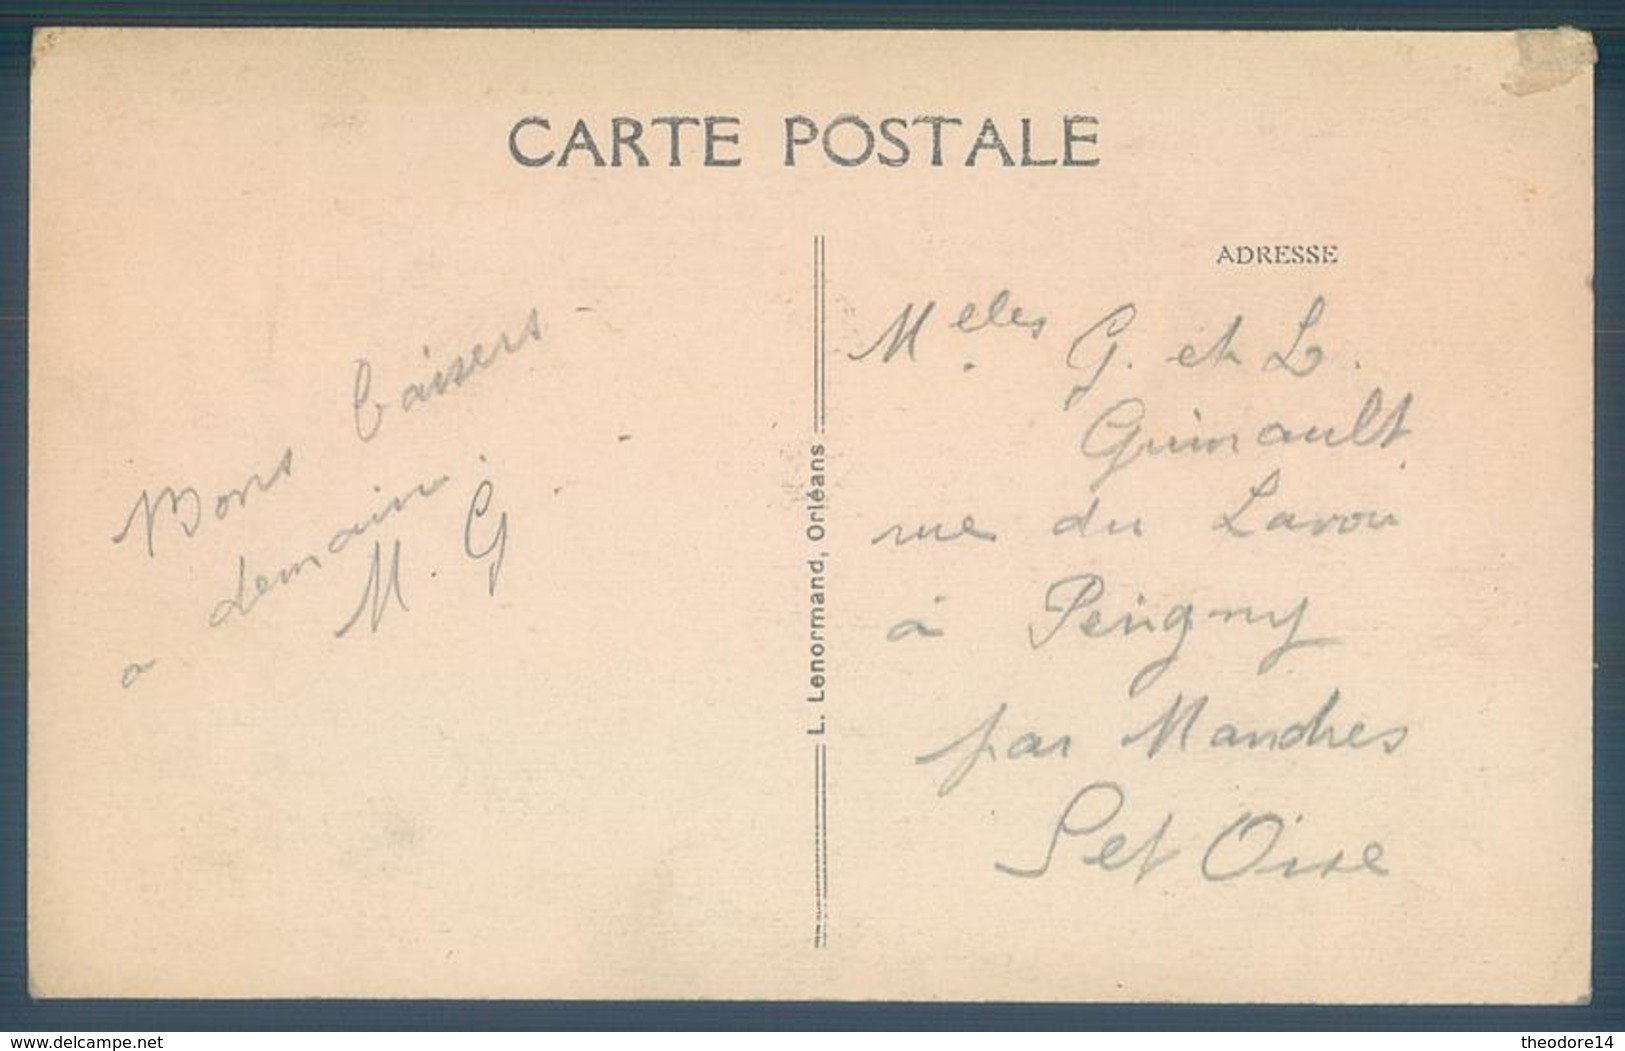 CARTE POSTALE
ADRESSE
Bons baisers -
a demain.
M. G
L. Lenormand, Orléans
Melles G. et L.
Guinault
rue du Lavoir
à Périgny
par Mandres
S et Oise
www.delcampe.net
theodore14